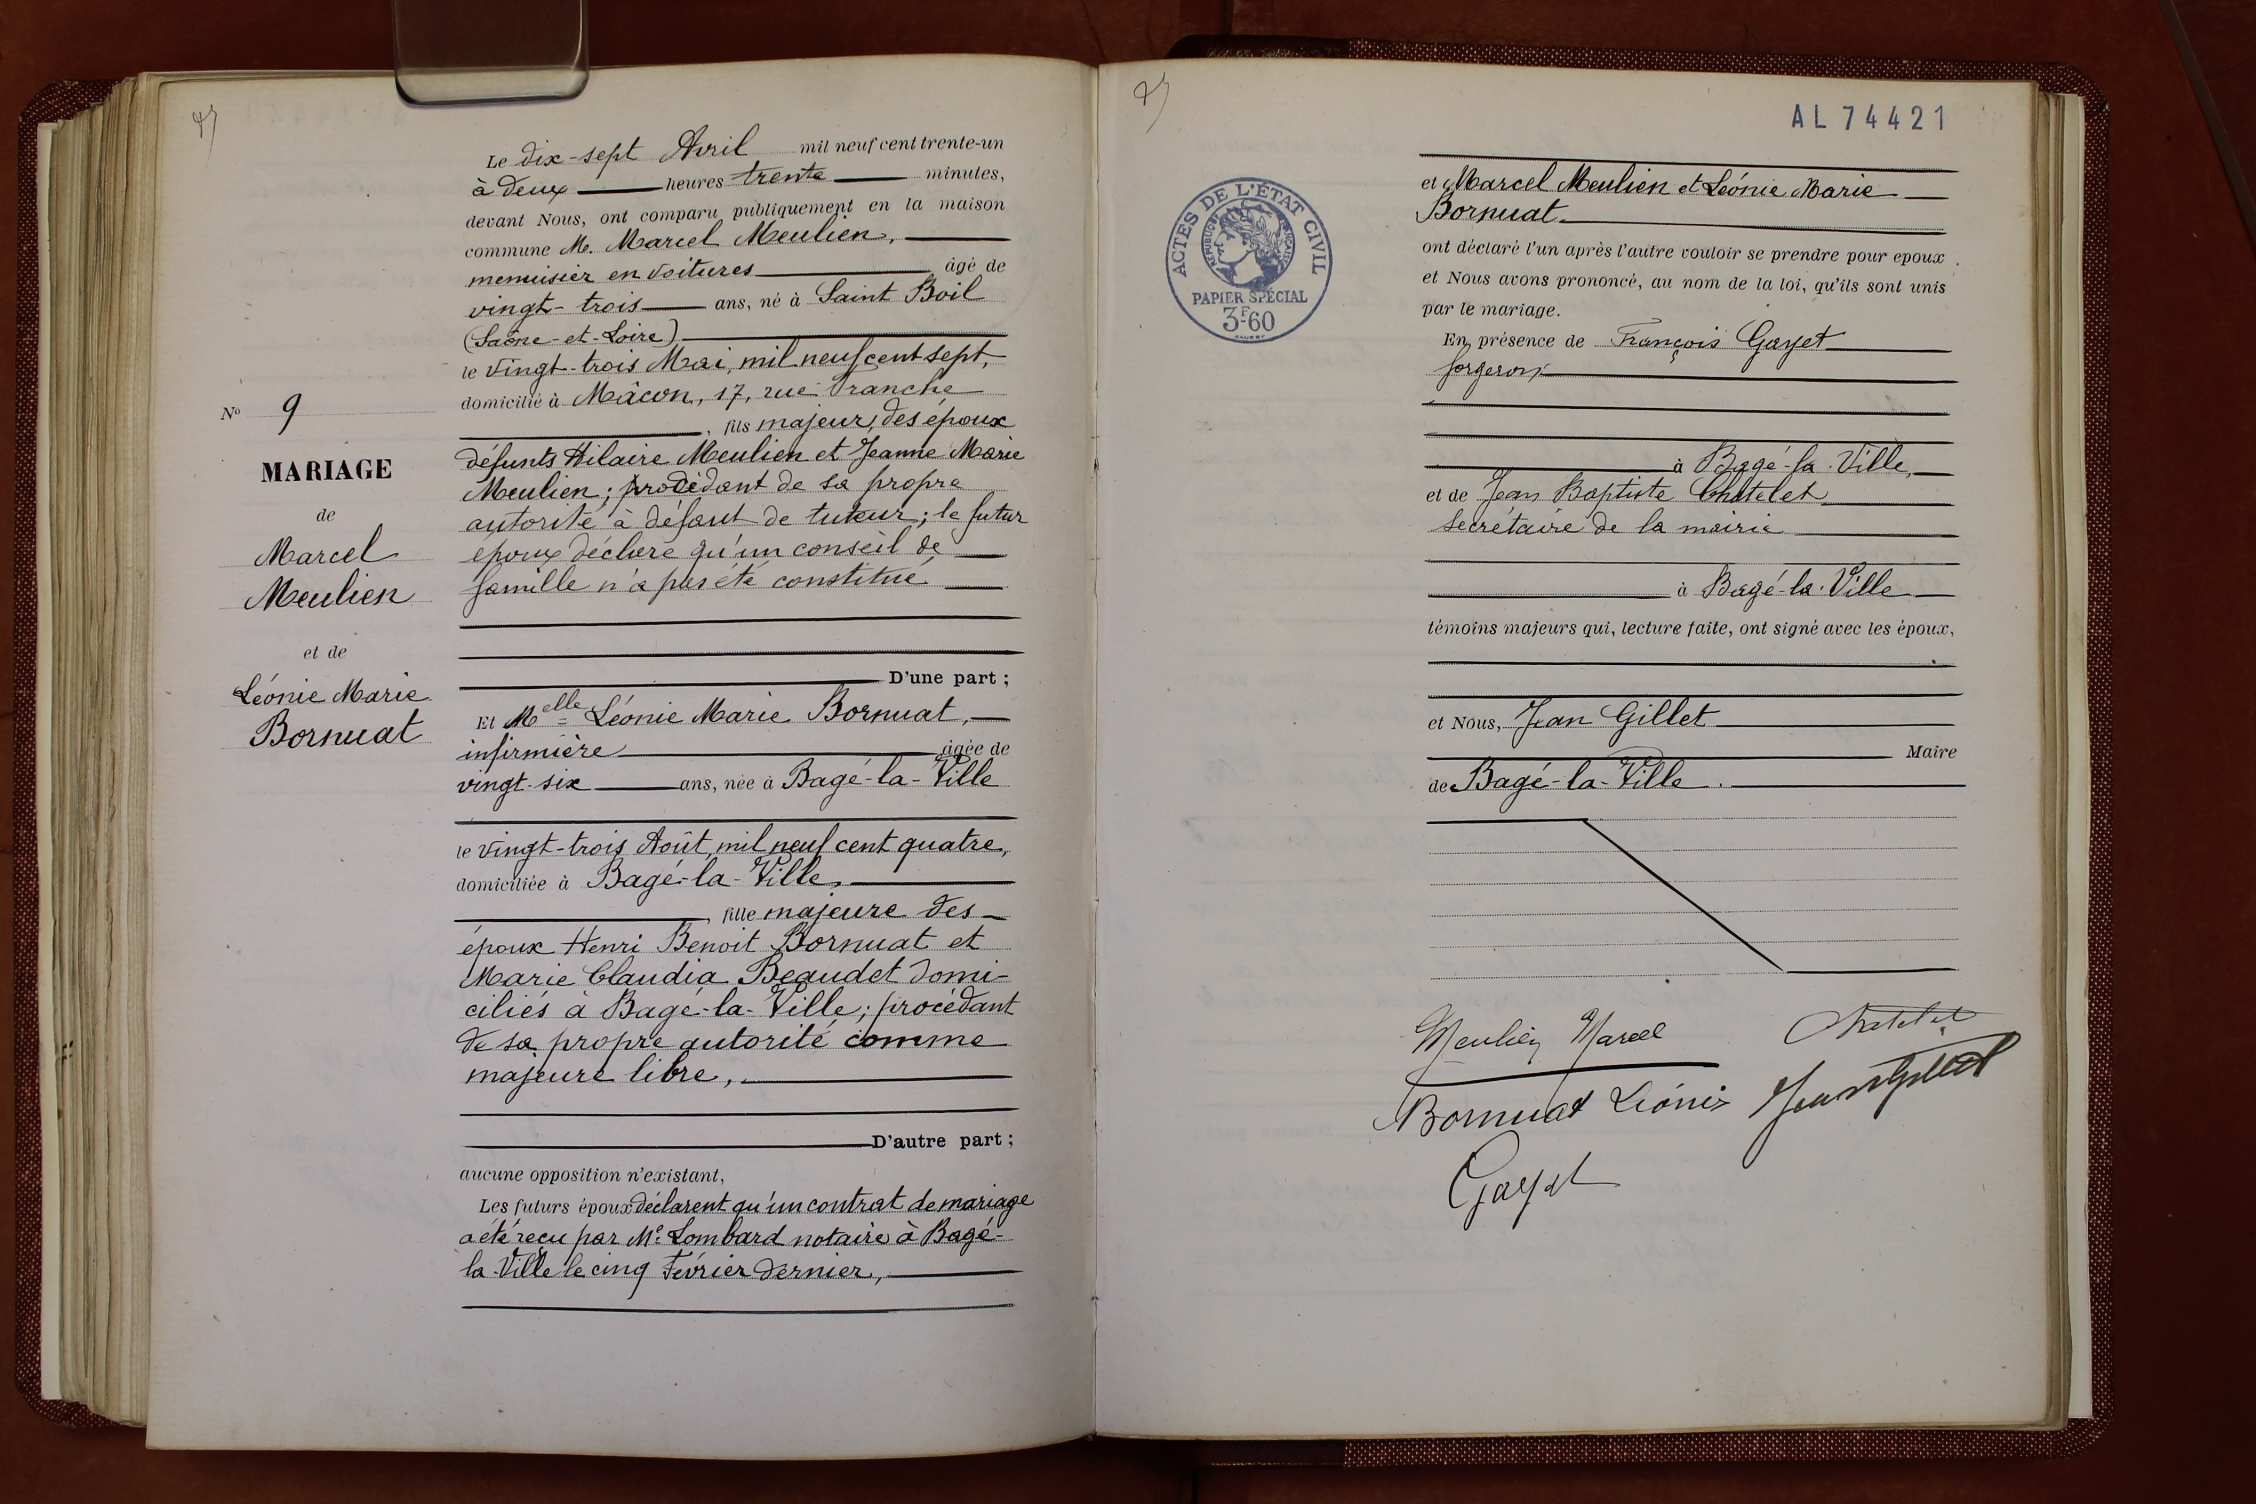 Le dix-sept Avril mil neuf cent trente-un
à deux heures trente minutes,
devant Nous, ont comparu publiquement en la maison
commune M. Marcel Meulien,
menuisier en voitures âgé de
vingt-trois ans, né à Saint Boil
(Saône-et-Loire)
le vingt-trois Mai, mil neuf cent sept,
domicilié à Mâcon, 17, rue Franche
, fils majeur, des époux
défunts Hilaire Meulien et Jeanne Marie
Meulien; procèdant de sa propre
autorité à défaut de tuteur; le futur
époux déclare qu'un conseil de
famille n'a pas été constitué,
D'une part;
Et Melle Léonie Marie Bornuat,
infirmière âgée de
vingt-six ans, née à Bagé-la-Ville
le vingt-trois Août, mil neuf cent quatre,
domiciliée à Bagé-la-Ville,
, fille majeure des
époux Henri Benoit Bornuat et
Marie Claudia Beaudet domi-
ciliés à Bagé-la-Ville; procédant
de sa propre autorité comme
majeure libre,
D'autre part;
aucune opposition n'existant,
Les futurs époux déclarent qu'un contrat de mariage
a été reçu par Me Lombard notaire à Bagé-
la-Ville le cinq Février dernier,
No 9
MARIAGE
de
Marcel
Meulien
et de
Léonie Marie
Bornuat
AL 74421
ACTES DE L'ÉTAT CIVIL
RÉPUBLIQUE FRANÇAISE
PAPIER SPÉCIAL
3F60
et Marcel Meulien et Léonie Marie
Bornuat
ont déclaré l'un après l'autre vouloir se prendre pour époux
et Nous avons prononcé, au nom de la loi, qu'ils sont unis
par le mariage.
En présence de François Gayet
forgeron
à Bagé-la-Ville,
et de Jean Baptiste Chatelet
secrétaire de la mairie
à Bagé-la-Ville
témoins majeurs qui, lecture faite, ont signé avec les époux,
et Nous, Jean Gillet
Maire
de Bagé-la-Ville.
Meulien Marcel
Chatelet
Bornuat Léonie
Jean Gillet
Gayet